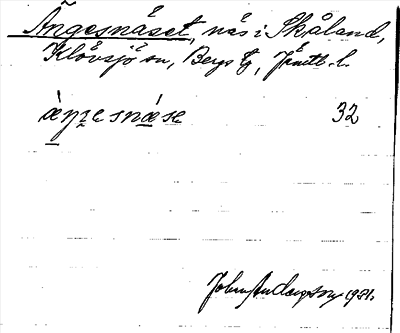 Ängesnäset, näs i Skåland,
Klövsjö sn, Bergs tg, Jämtl. l.
àŋɛesnæse 32
John Andersson 1931.